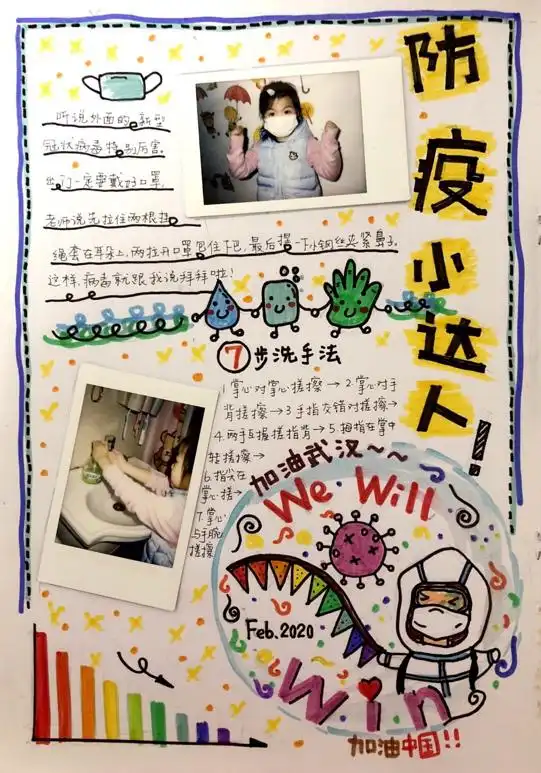 防疫小达人!
听说外面的新型
冠状病毒特别厉害.
出门一定要戴好口罩.
老师说先拉住两根挂
绳套在耳朵上,两拉开口罩包住下巴,最后提一下小钢丝夹紧鼻子.
这样,病毒就跟我说拜拜啦!
7步洗手法
1.掌心对掌心搓擦→2.掌心对手
背搓擦→3手指交错对搓擦→
4.两手互握搓指背→5.拇指在掌中
转搓擦→
6.指尖在
掌心搓→
7.掌心
与手腕
搓擦
加油武汉~~
We Will
Feb.2020
Win
加油中国!!